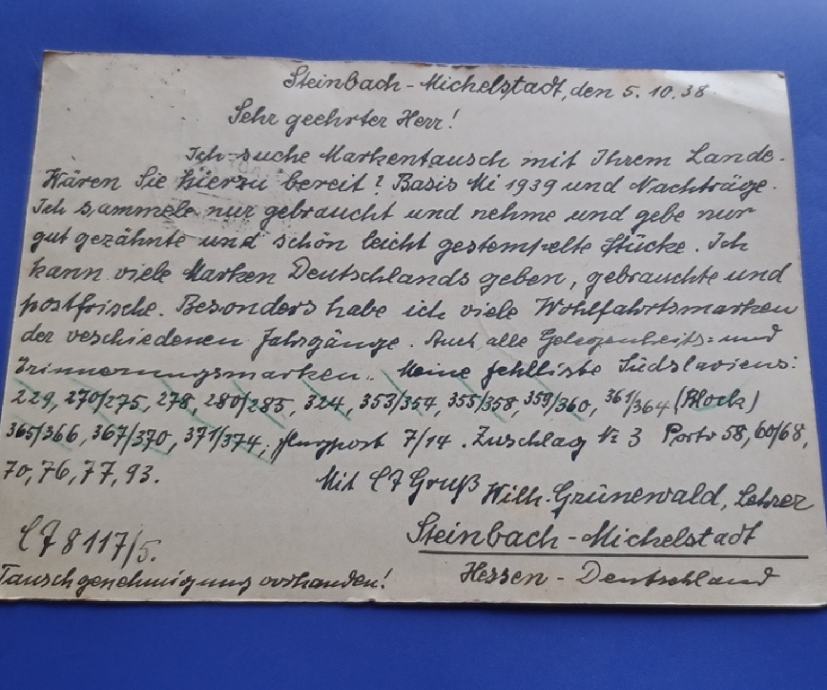 Steinbach-Michelstadt, den 5.10.38
Sehr geehrter Herr!
Ich suche Markentausch mit Ihrem Lande.
Wären Sie hierzu bereit? Basis Mi 1939 und Nachträge.
Ich sammele nur gebraucht und nehme und gebe nur
gut gezähnte und schön leicht gestempelte Stücke. Ich
kann viele Marken Deutschlands geben, gebrauchte und
postfrische. Besonders habe ich viele Wohlfahrtsmarken
der veschiedenen Jahrgänge. Auch alle Gelegenheits- und
Erinnerungsmarken. Meine Fehlliste Südslaviens:
229, 270/275, 278, 280/285, 324, 353/354, 355/358, 359/360, 361/364 (Block)
365/366, 367/370, 371/374, Flugpost 7/14. Zuschlag Nr 3 Porto 58, 60/68,
70, 76, 77, 93.
Mit CJ Gruß Wilh. Grünewald, Lehrer
CJ 8117/5.
Steinbach-Michelstadt
Tauschgenehmigung vorhanden!
Hessen - Deutschland